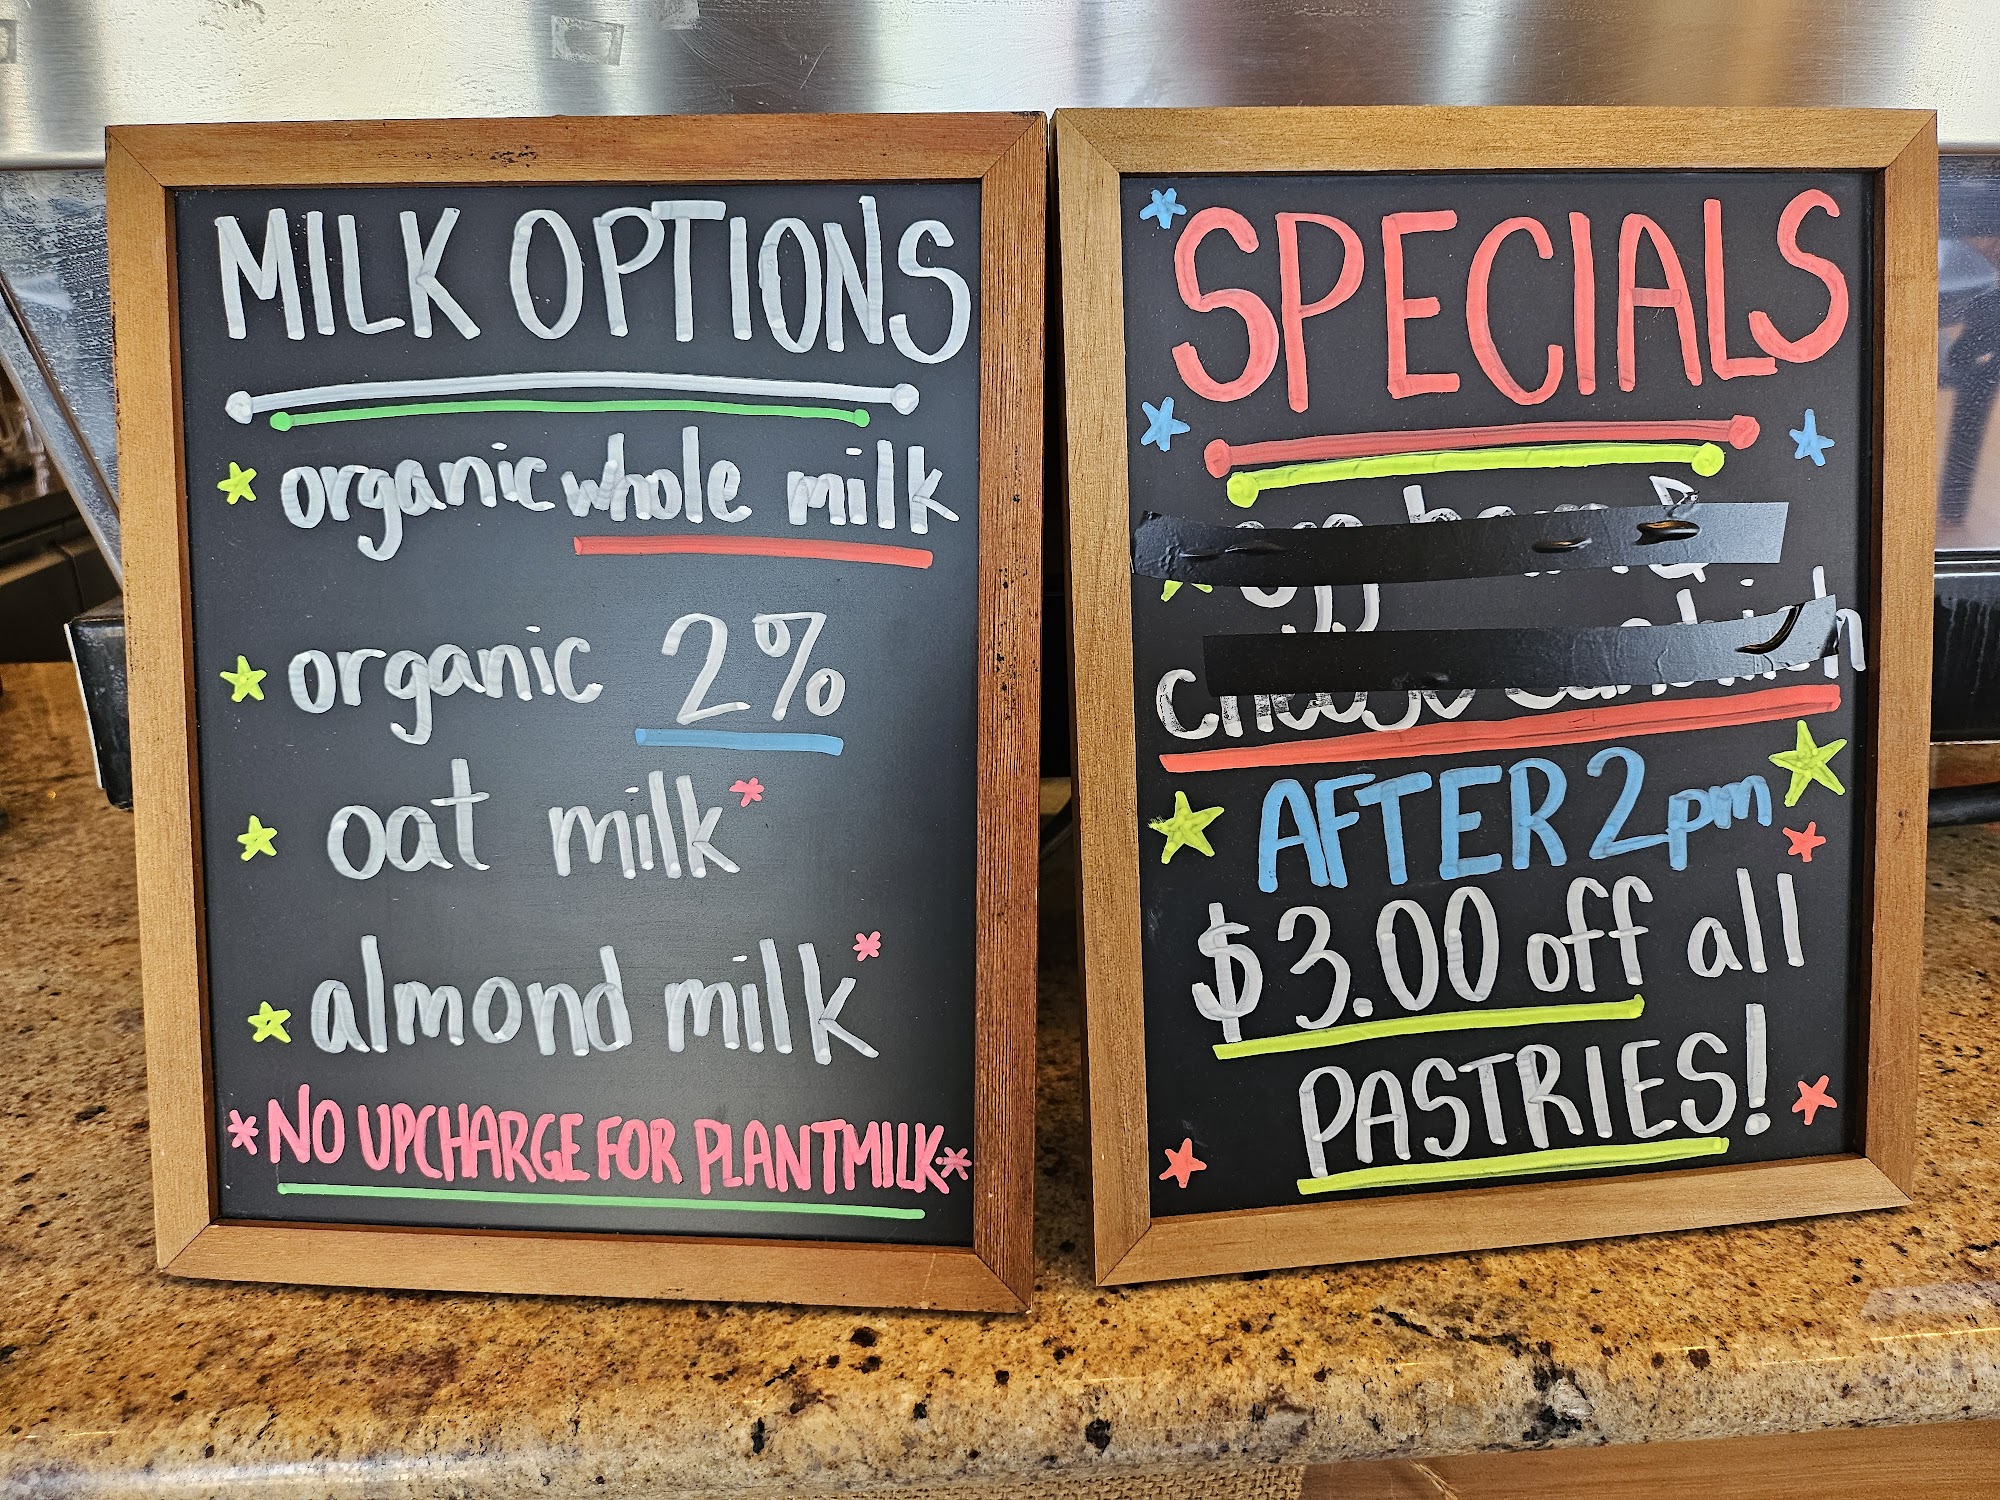 MILK OPTIONS
organic whole milk
organic 2%
oat milk*
almond milk*
*NO UPCHARGE FOR PLANTMILK*
SPECIALS
egg ham &
cheese sandwich
AFTER 2pm
$3.00 off all
PASTRIES!